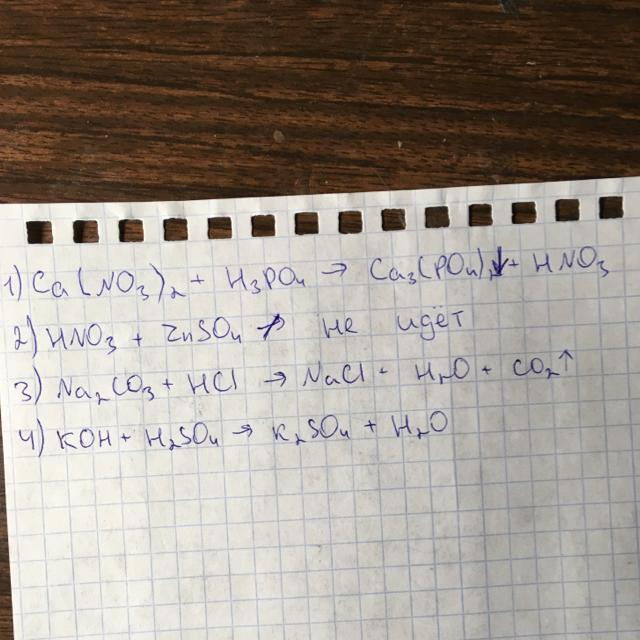 1) Ca(NO₃)₂ + H₃PO₄ → Ca₃(PO₄)₂↓ + HNO₃
2) HNO₃ + ZnSO₄ ↛ не идёт
3) Na₂CO₃ + HCl → NaCl + H₂O + CO₂↑
4) KOH + H₂SO₄ → K₂SO₄ + H₂O